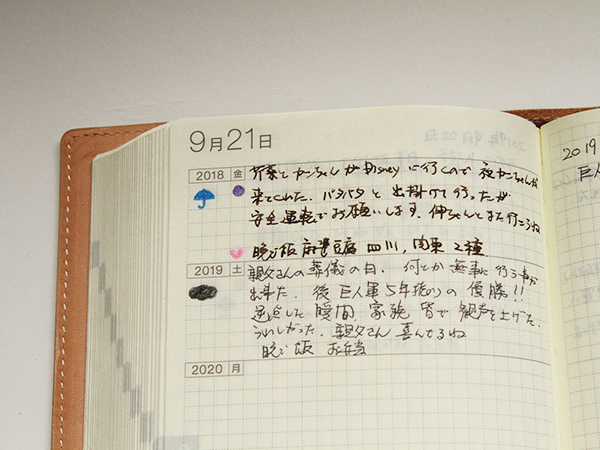 9月21日
2018 金 芥菜とカーンちゃんがDisneyに行くので 夜カーンちゃんが
来てくれた. バタバタと 出掛けて行ったが
安全運転でお願いします. 仲ちゃんとまた行こうね
晩ご飯 麻婆豆腐 四川, 関東 2種
2019 土 親父さんの葬儀の日. 何とか無事に行う事が
出来た. 後 巨人軍 5年振りの優勝!!
逆転した 瞬間 家族 皆で 歓声を上げた.
うれしかった. 親父さん 喜んでるね
晩ご飯 お弁当
2020 月
2019
巨人